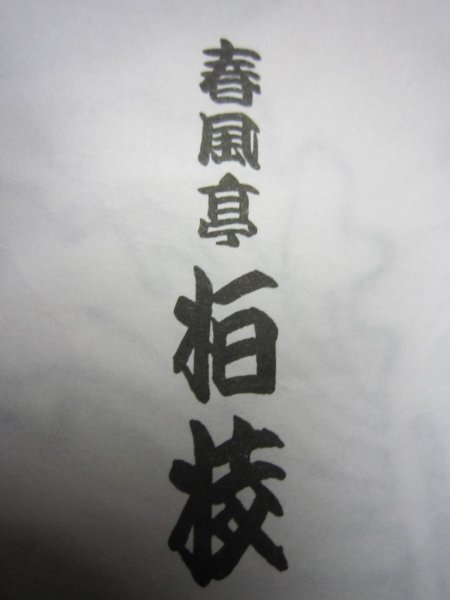 春風亭柏枝